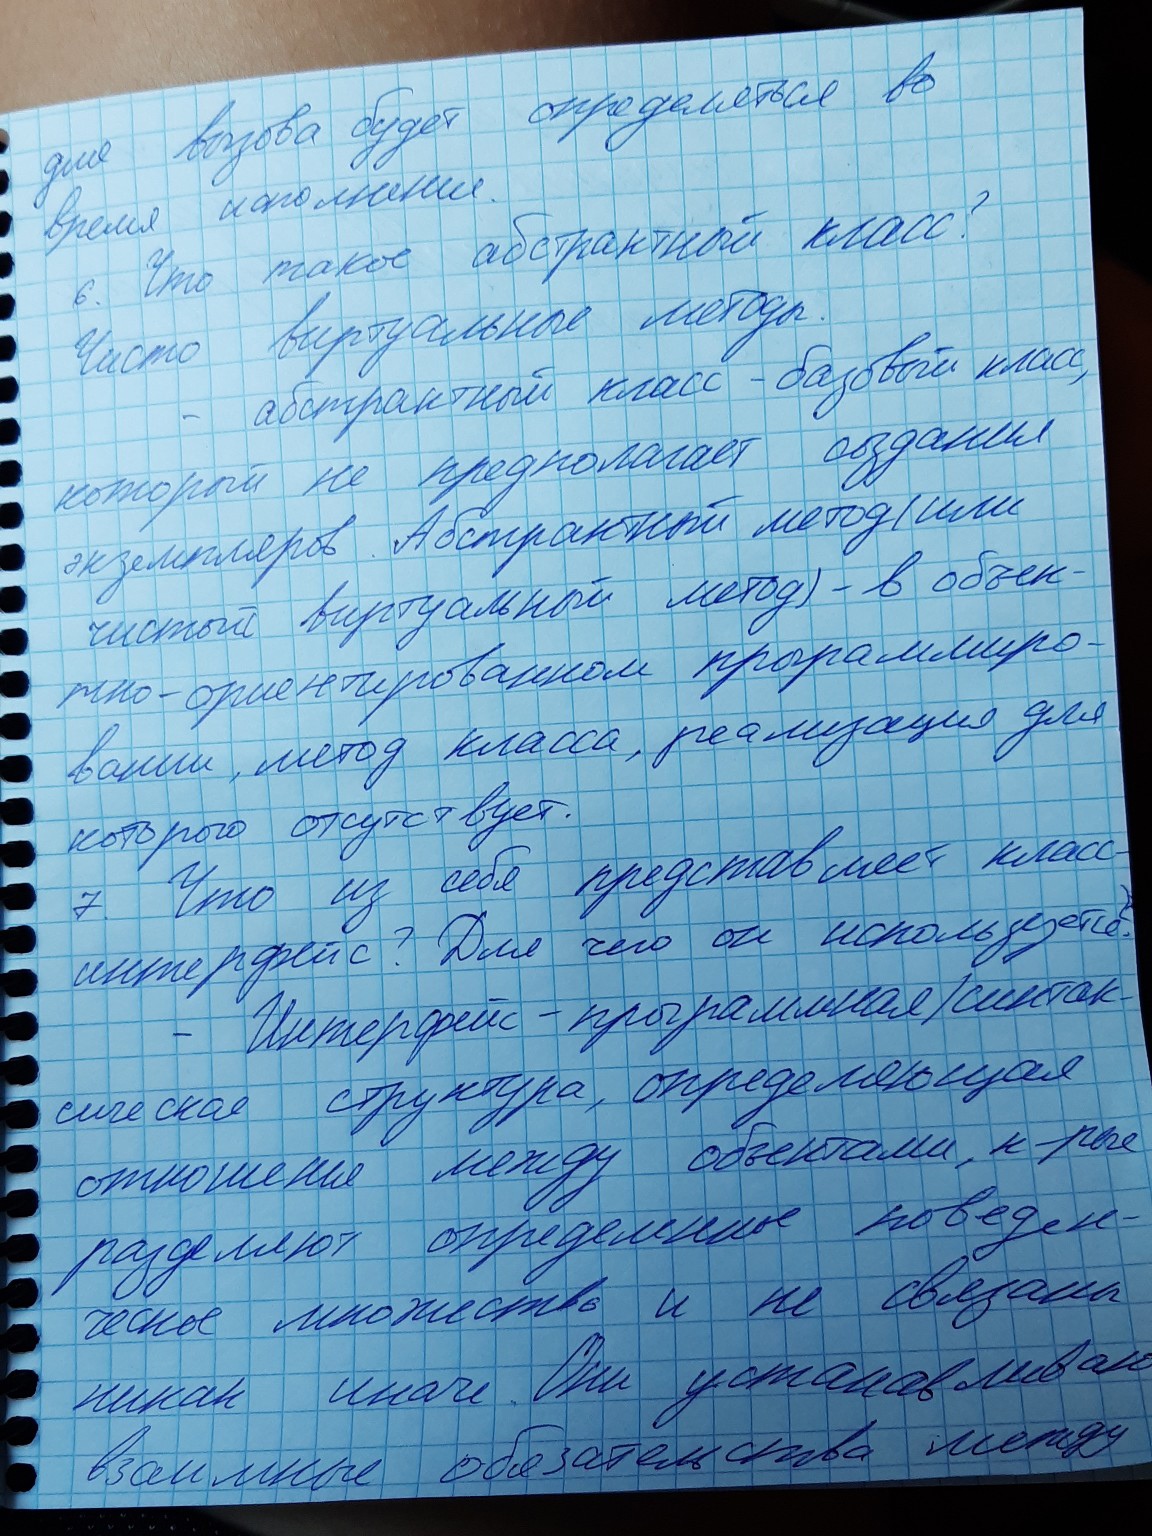 для вызова будет определяться во
время исполнения.
6. Что такое абстрактный класс?
Чисто виртуальные методы.
- абстрактный класс - базовый класс,
который не предполагает создания
экземпляров. Абстрактный метод (или
чистый виртуальный метод) - в объек-
тно-ориентированном программиро-
вании, метод класса, реализация для
которого отсутствует.
7. Что из себя представляет класс-
интерфейс? Для чего он используется?
- Интерфейс - программная/синтак-
сическая структура, определяющая
отношение между объектами, к-рые
разделяют определенные поведен-
ческое множество и не связаны
никак иначе. Они устанавливают
взаимные обязательства между